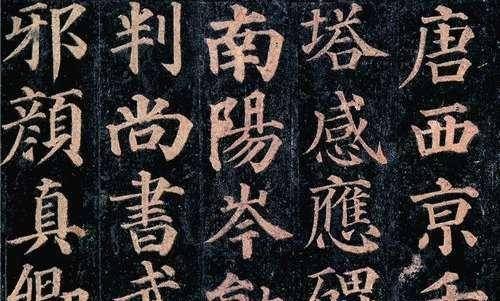 唐西亰千
塔感應碑
南陽岑
判尚書武
邪顏真卿